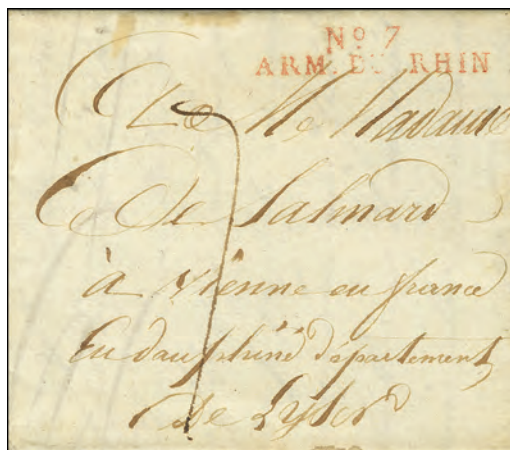 No 7
ARM. DU RHIN
Madame
De Salmard
à Vienne en france
En dauphiné département
De